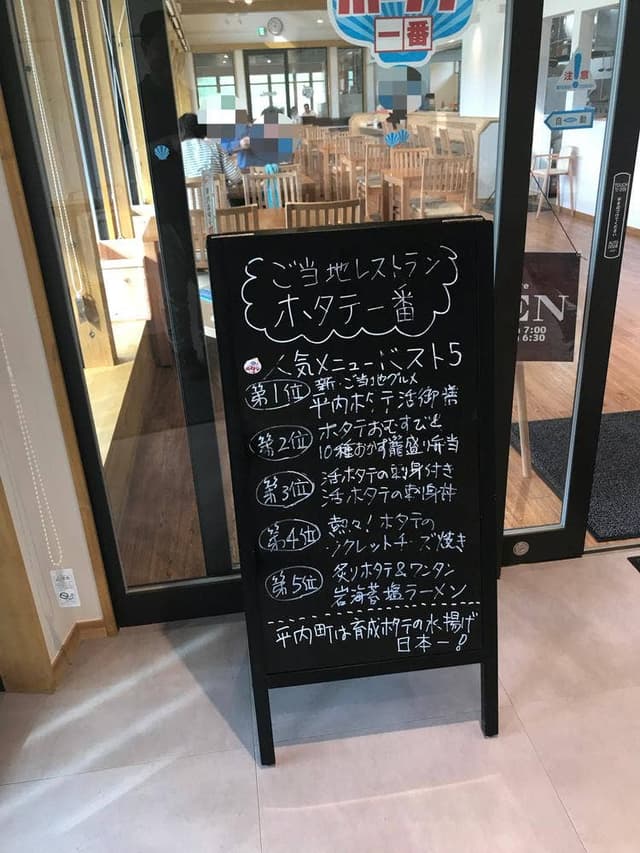 一番
注意
自動
ご当地レストラン
ホタテ一番
人気メニューベスト5
第1位
新・ご当地グルメ
平内ホタテ活御膳
第2位
ホタテおむすびと
10種おかず籠盛り弁当
第3位
活ホタテの刺身付き
活ホタテの刺身丼
第4位
熱々!ホタテの
シークレットチーズ焼き
第5位
炙りホタテ&ワンタン
岩海苔塩ラーメン
平内町は育成ホタテの水揚げ
日本一!
EN
7:00
6:30